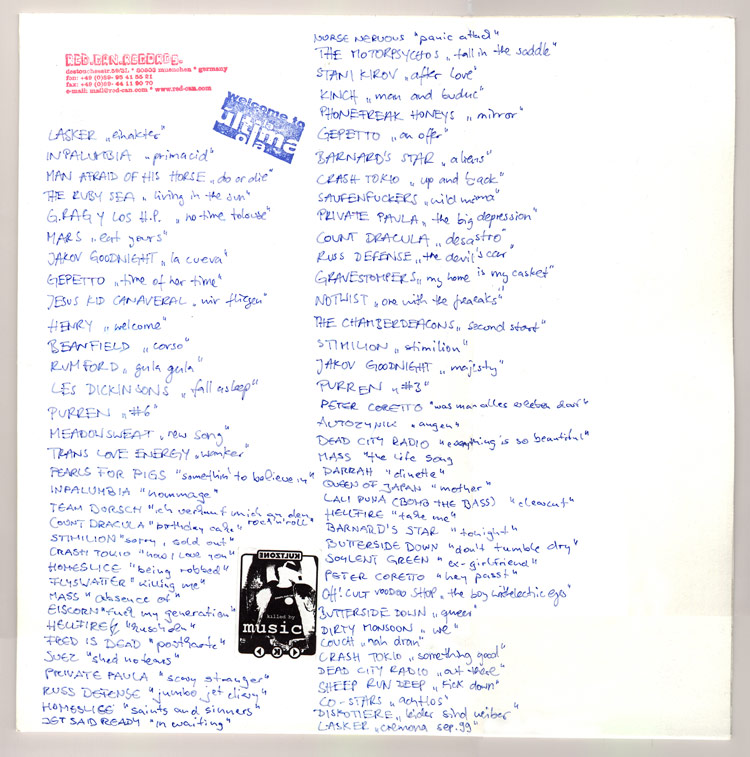 RED.CAN.RECORDS.
destouchesstr.59/2L * 80803 muenchen * germany
fon: +49 (0)89- 95 41 55 21
fax: +49 (0)89- 44 11 90 70
e-mail: mail@red-can.com * www.red-can.com
welcome to
ultima
LASKER „einakter"
INPALUMBIA „primacid"
MAN AFRAID OF HIS HORSE „do or die"
THE RUBY SEA „living in the sun"
G.RAG Y LOS H.P. „no time tolouse"
MARS „eat yours"
JAKOV GOODNIGHT „la cueva"
GEPETTO „time of her time"
JESUS KID CANAVERAL „wir fliegen"
HENRY „welcome"
BEANFIELD „corso"
RUMFORD „gula gula"
LES DICKINSONS „fall asleep"
PURREN „#6"
MEADOWSWEAT „new song"
TRANS LOVE ENERGY „wanker"
PEARLS FOR PIGS "somethin' to believe in"
INPALUMBIA "hommage"
TEAM DORSCH "ich verkauf mich an den rock'n'roll"
COUNT DRACULA "birthday cake"
STIMILION "sorry, sold out"
CRASH TOKIO "how I love you"
HOMESLICE "being robbed"
FLYSWATTER "killing me"
MASS "absence of"
EISCORN "fuel my generation"
HELLFIRE
FRED IS DEAD "postkarte"
JUEZ "shed no tears"
PRIVATE PAULA "scary stranger"
RUSS DEFENSE "jumbo jet
HOMESLICE "saints and sinners"
JET SAID READY "in waiting"
KULTZONE
killed by
music
NURSE NERVOUS "panic attack"
THE MOTORPSYCHOS „tall in the saddle"
STANI KIROV „after love"
KINCH „men and
PHONEFREAK HONEYS „mirror"
GEPETTO „an offer"
BARNARD'S STAR „aliens"
CRASH TOKIO „up and back"
SAUFENFUCKERS „wild mama"
PRIVATE PAULA „the big depression"
COUNT DRACULA „desastro"
RUSS DEFENSE „the devil's car"
GRAVESTOMPERS „my home is my casket"
NOTWIST „one with the freaks"
THE CHAMBERDEACONS „second start"
STIMILION „stimilion"
JAKOV GOODNIGHT „majesty"
PURREN „#3"
PETER CORETTO "was man alles werden darf"
AUTOZYNIK „augen"
DEAD CITY RADIO "everything is so beautiful"
MASS "the life song
DARRAH "dinette"
QUEEN OF JAPAN "mother"
LALI PUNA (BOMB THE BASS) "clearcut"
HELLFIRE "take me"
BARNARD'S STAR "tonight"
BUTTERSIDE DOWN "don't tumble dry"
SOYLENT GREEN "ex-girlfriend"
PETER CORETTO "hey passt"
Off! CULT VOODOO SHOP „the boy with electric eyes"
BUTTERSIDE DOWN „queer"
DIRTY MONSOON „we"
COUCH „nah dran"
CRASH TOKIO „something good"
DEAD CITY RADIO „out there"
SHEEP RUN DEEP „fick down"
CO-STARS „achtlos"
DISKOTIERE „leider sind weiber"
LASKER „cremona sep. 99"